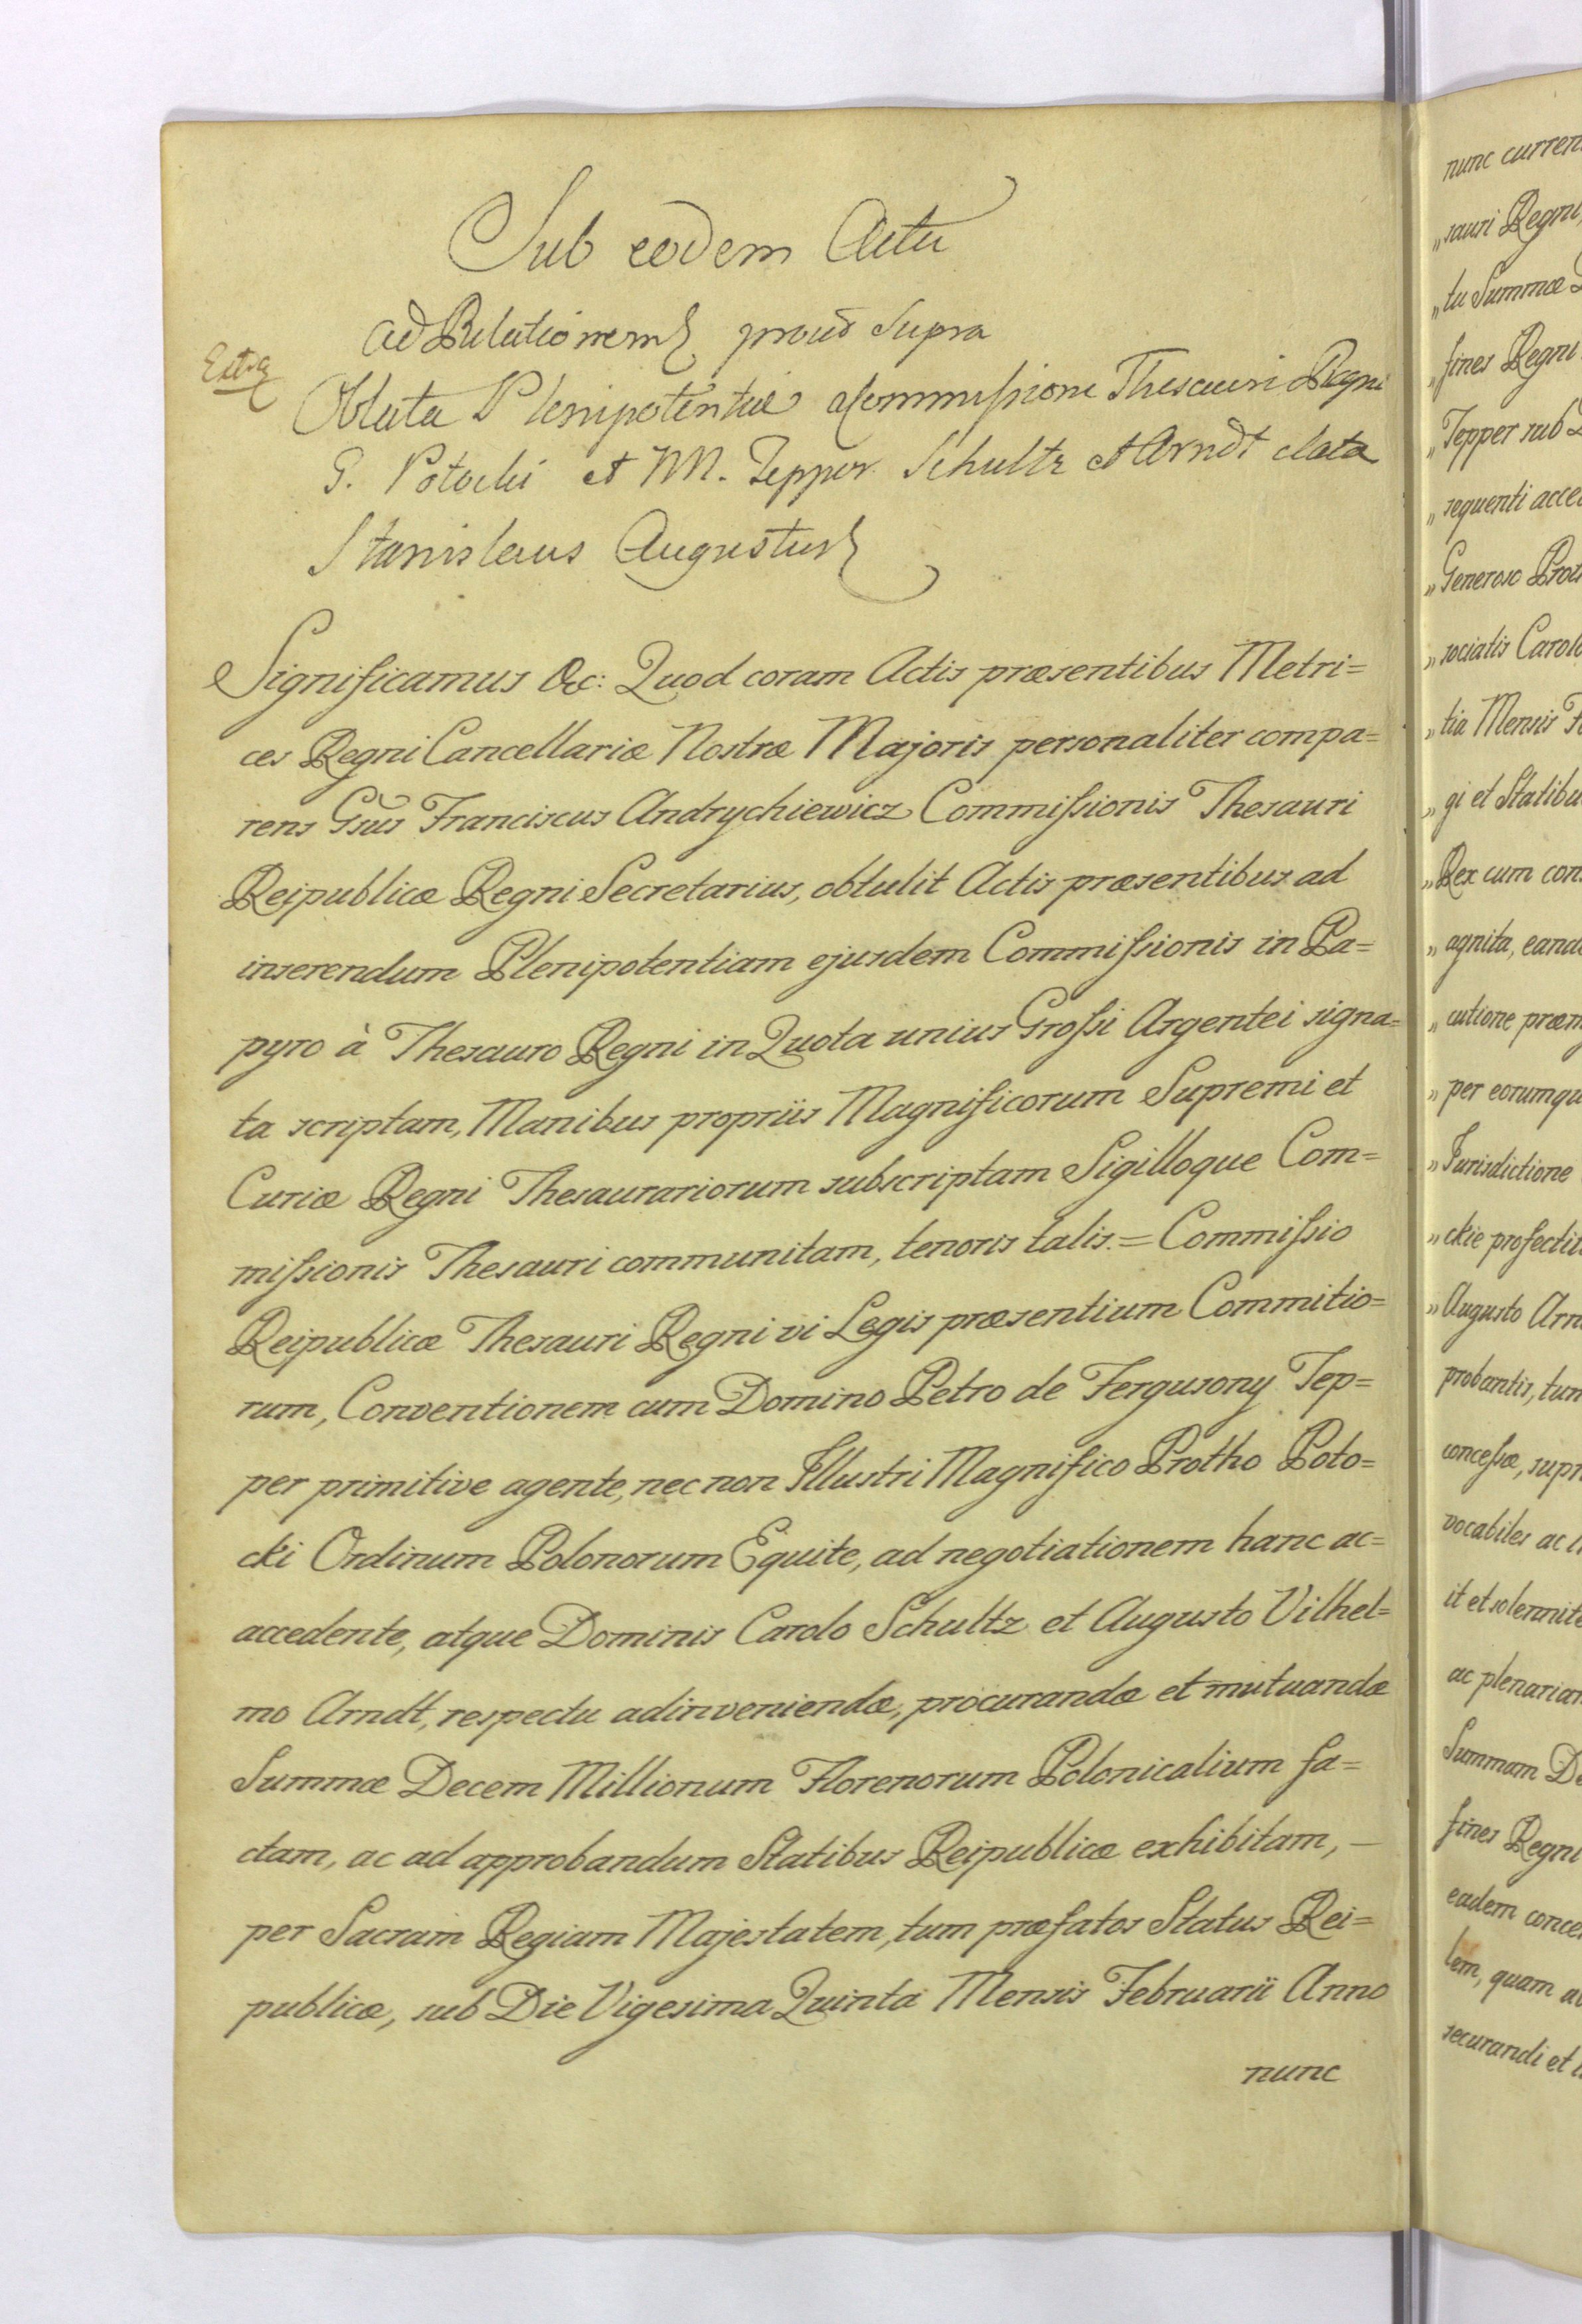 Sub eodem Actu
ad Relationem prout supra
Extra
Oblata Plenipotentiæ a Commissione Thesauri Regni
G. Potocki et MM. Tepper Schultz et Arndt data
Stanislaus Augustus
Significamus &c: Quod coram Actis præsentibus Metri=
ces Regni Cancellariæ Nostræ Majoris personaliter compa=
rens Gsus Franciscus Andrychiewicz Commissionis Thesauri
Reipublicæ Regni Secretarius, obtulit Actis præsentibus ad
inserendum Plenipotentiam ejusdem Commissionis in Pa=
pyro à Thesauro Regni in Quota unius Grossi Argentei signa=
ta scriptam, Manibus propriis Magnificorum Supremi et
Curiæ Regni Thesaurariorum subscriptam Sigilloque Com=
missionis Thesauri communitam, tenoris talis.= Commissio
Reipublicæ Thesauri Regni vi Legis præsentium Commitio=
rum, Conventionem cum Domino Petro de Fergusony Tep=
per primitive agente, nec non Illustri Magnifico Protho Poto=
cki Ordinum Polonorum Equite, ad negotiationem hanc ac=
accedente, atque Dominis Carolo Schultz et Augusto Vilhel=
mo Arndt, respectu adinveniendæ, procurandæ et mutuandæ
Summæ Decem Millionum Florenorum Polonicalium fa=
ctam, ac ad approbandum Statibus Reipublicæ exhibitam, —
per Sacram Regiam Majestatem, tum præfatos Status Rei=
publicæ, sub Die Vigesima Quinta Mensis Februarii Anno
nunc
nunc curren
„sauri Regni,
„tu Summæ
„fines Regni
„Tepper sub
„sequenti acce
„Generoso Prot
„sociatis Carolo
„tia Mensis
„gi et Statibu
„Rex cum con
„agnita, eand
„cutione præm
„per eorumqu
„Jurisdictione
„ckie profectu
„Augusto Arn
probantis, tum
concessæ, supr
vocabiles ac
it et solennite
ac plenariam
Summam De
fines Regni
eadem conce
lem, quam
securandi et